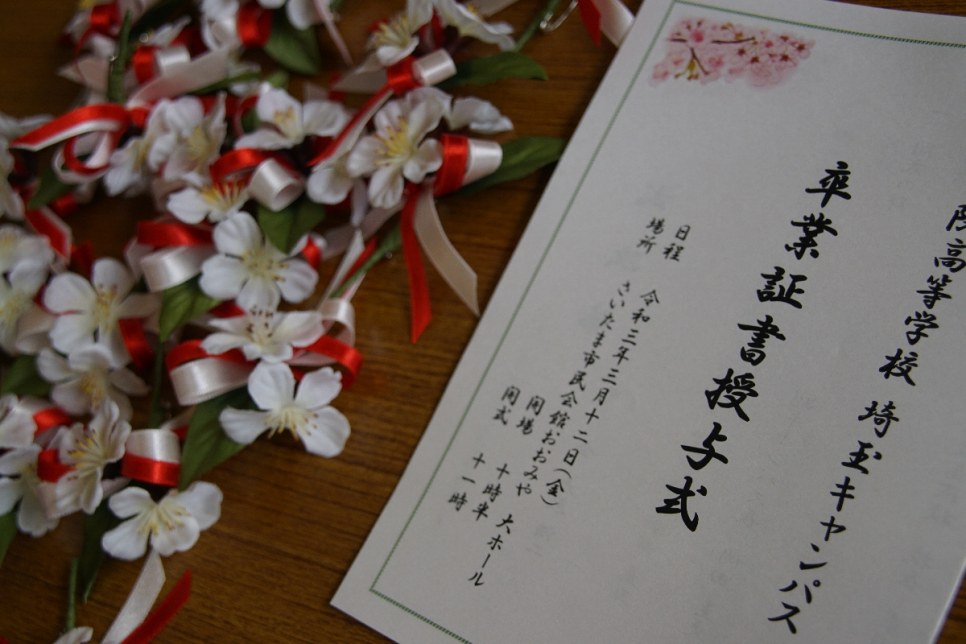 高等学校 埼玉キャンパス
卒業証書授与式
日程 令和三年三月十二日(金)
場所 さいたま市民会館おおみや 大ホール
開場 十時半
開式 十一時